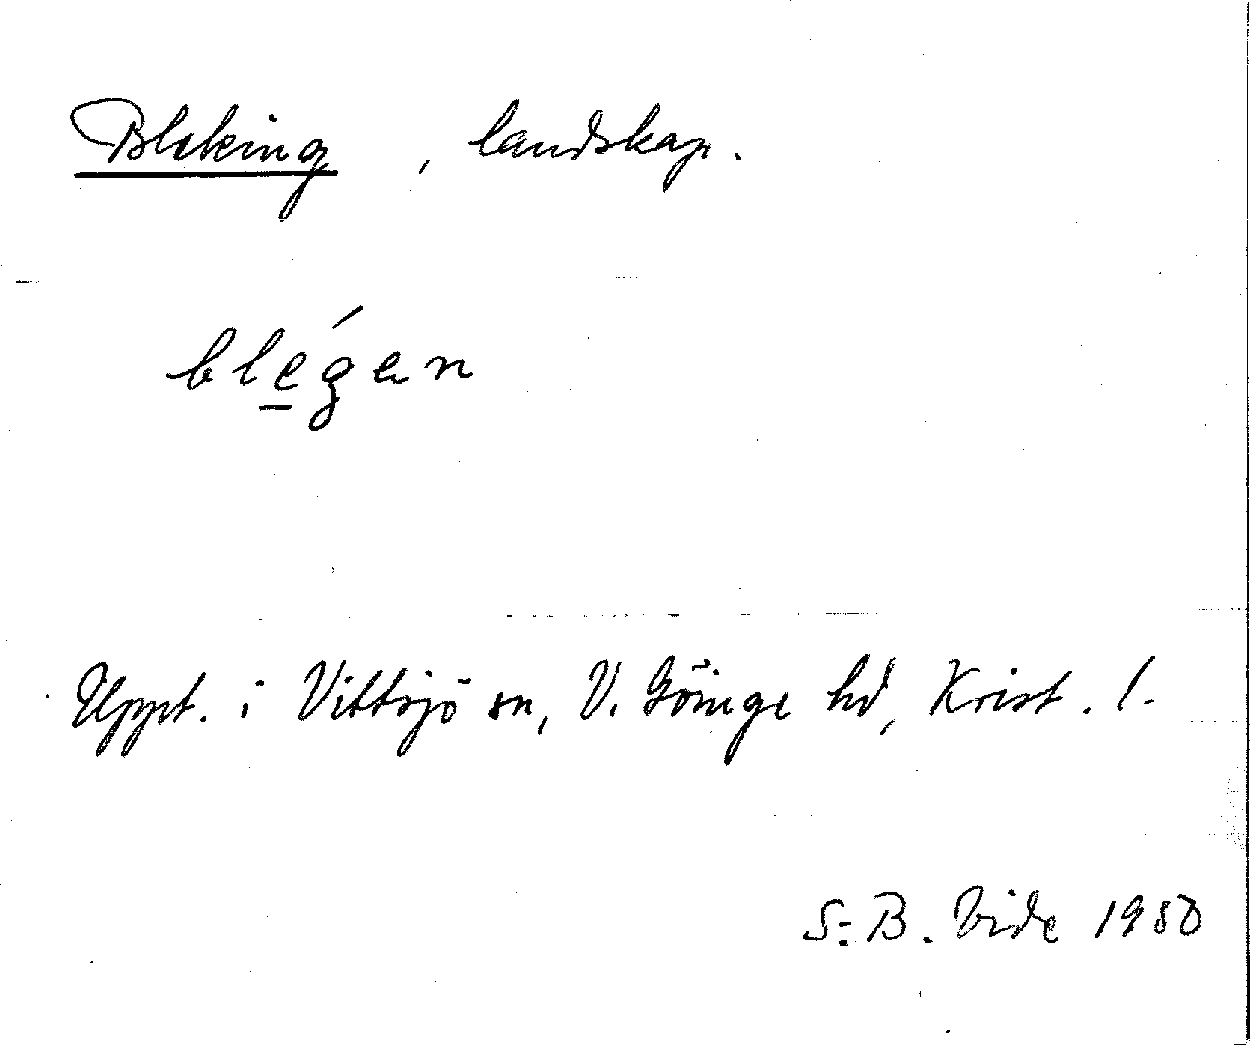 Bleking, landskap.
blegen
Uppt. i Vittsjö sn, V. Göinge hd, Krist. l.
S:B. Vide 1950